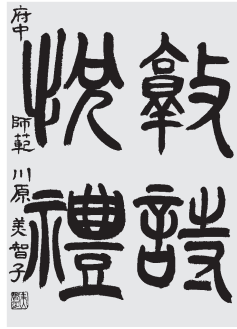 敦詩
悦禮
府中 師範 川原美智子